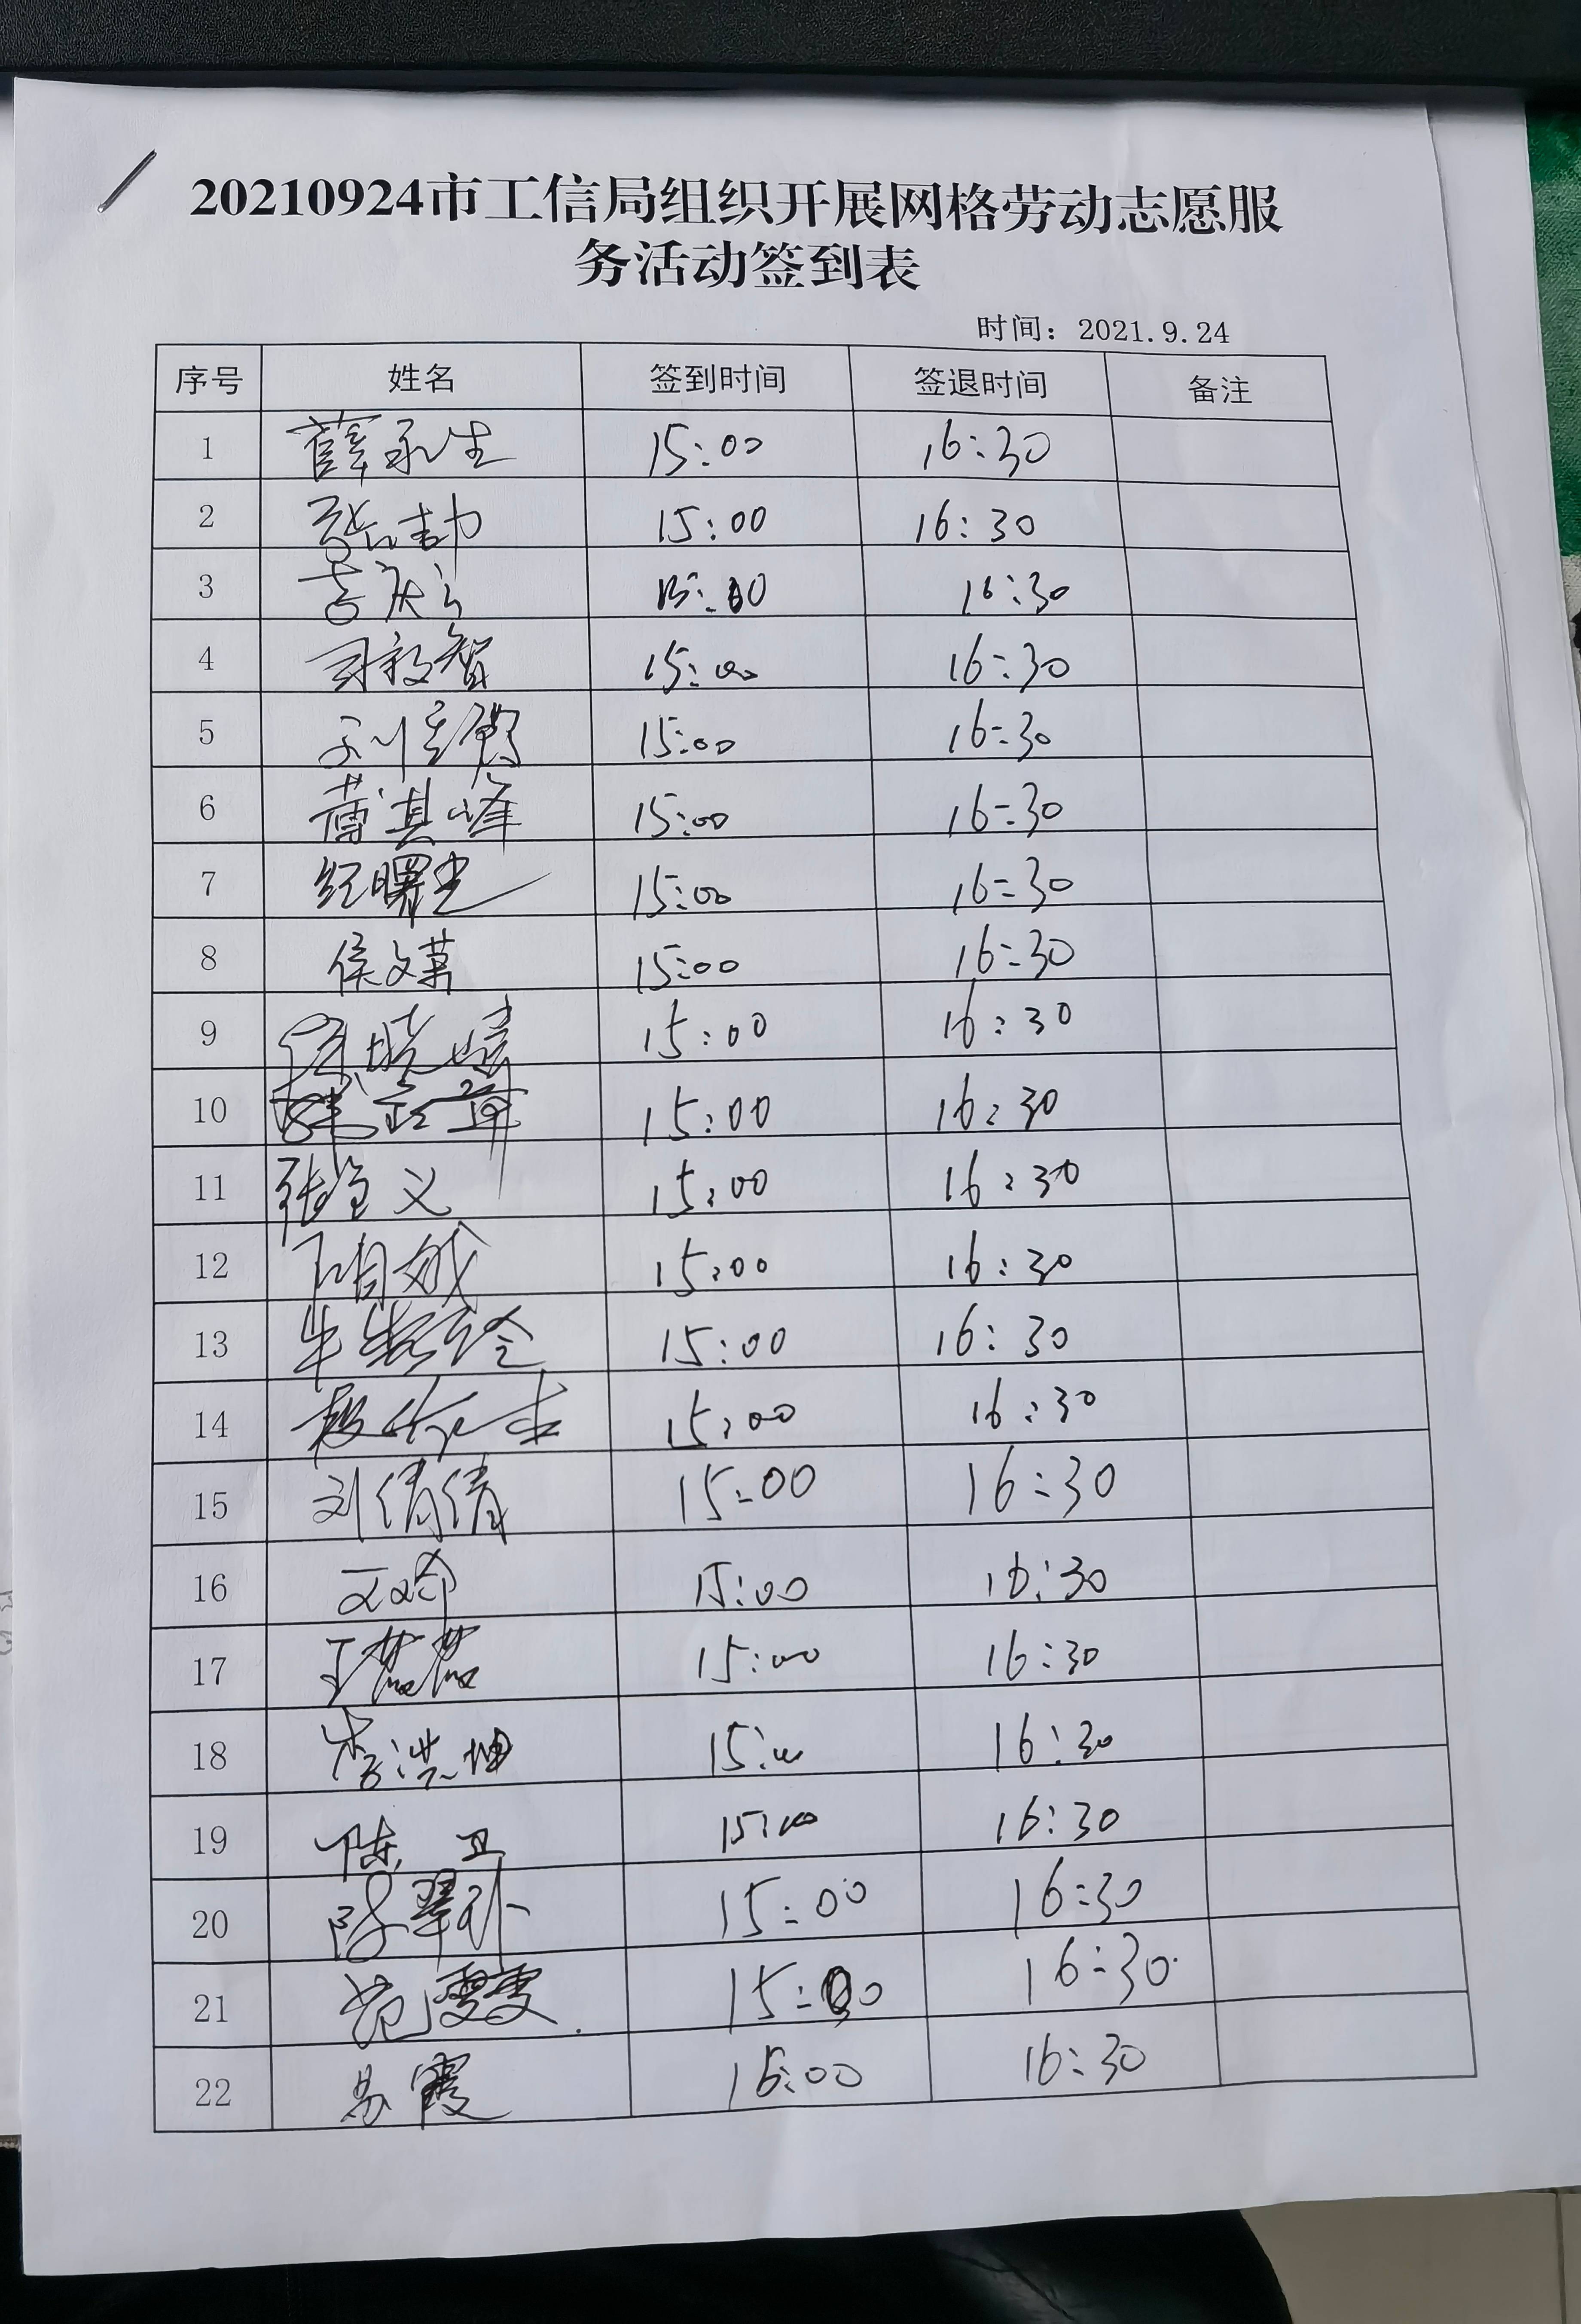 20210924市工信局组织开展网格劳动志愿服
务活动签到表
时间：2021.9.24
序号 姓名 签到时间 签退时间 备注
1 薛永生 15:00 16:30
2 张劼 15:00 16:30
3 15:00 16:30
4 司毅智 15:00 16:30
5 刘 15:00 16:30
6 黄其峰 15:00 16:30
7 纪曙光 15:00 16:30
8 侯文 15:00 16:30
9 晓 15:00 16:30
10 15:00 16:30
11 张 义 15:00 16:30
12 15:00 16:30
13 牛 15:00 16:30
14 赵 15:00 16:30
15 刘倩倩 15:00 16:30
16 15:00 16:30
17 王 15:00 16:30
18 李洪坤 15:00 16:30
19 陈卫 15:00 16:30
20 15:00 16:30
21 范雯雯 15:00 16:30
22 易霞 15:00 16:30